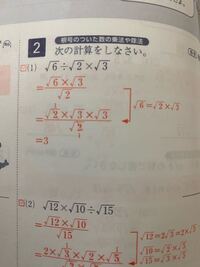 根号のついた数の乗法や除法
2 次の計算をしなさい。
(1) √6÷√2×√3
=√6×√3/√2
=√2×√3×√3/√2
√6=√2×√3
=3
(2) √12×√10÷√15
=√12×√10/√15
√12=2√3=2×√3
√10=√2×√5